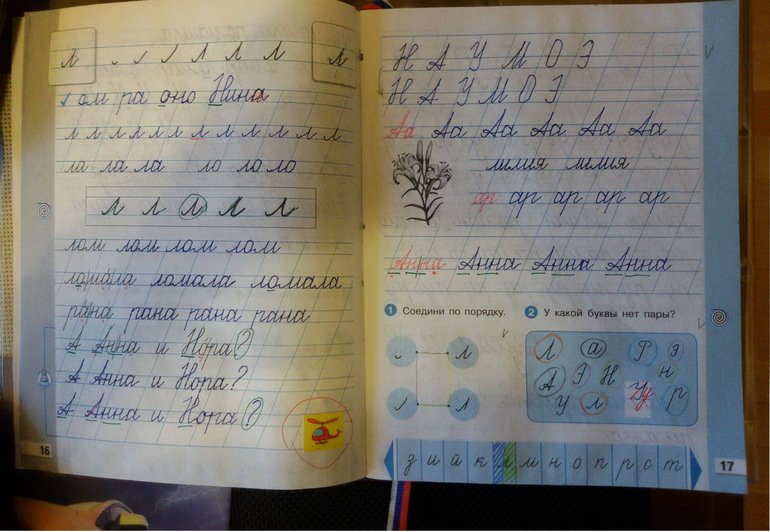 л л л л л
ом ра оно Нина
л л л л л л л л л л л л л
ла ла ла ло ло ло
л л л л л
лом лом лом лом
ломала ломала ломала
рана рана рана рана
А Анна и Нора?
А Анна и Нора?
А Анна и Нора?
16
Н А У М О Э
Н А У М О Э
Аа Аа Аа Аа Аа Аа
лилия лилия
ар ар ар ар ар
Анна Анна Анна Анна
1 Соедини по порядку.
л
л л
2 У какой буквы нет пары?
Л а Р э
А Э Н н
У л Уу р
з и й к л м н о п р с т
17